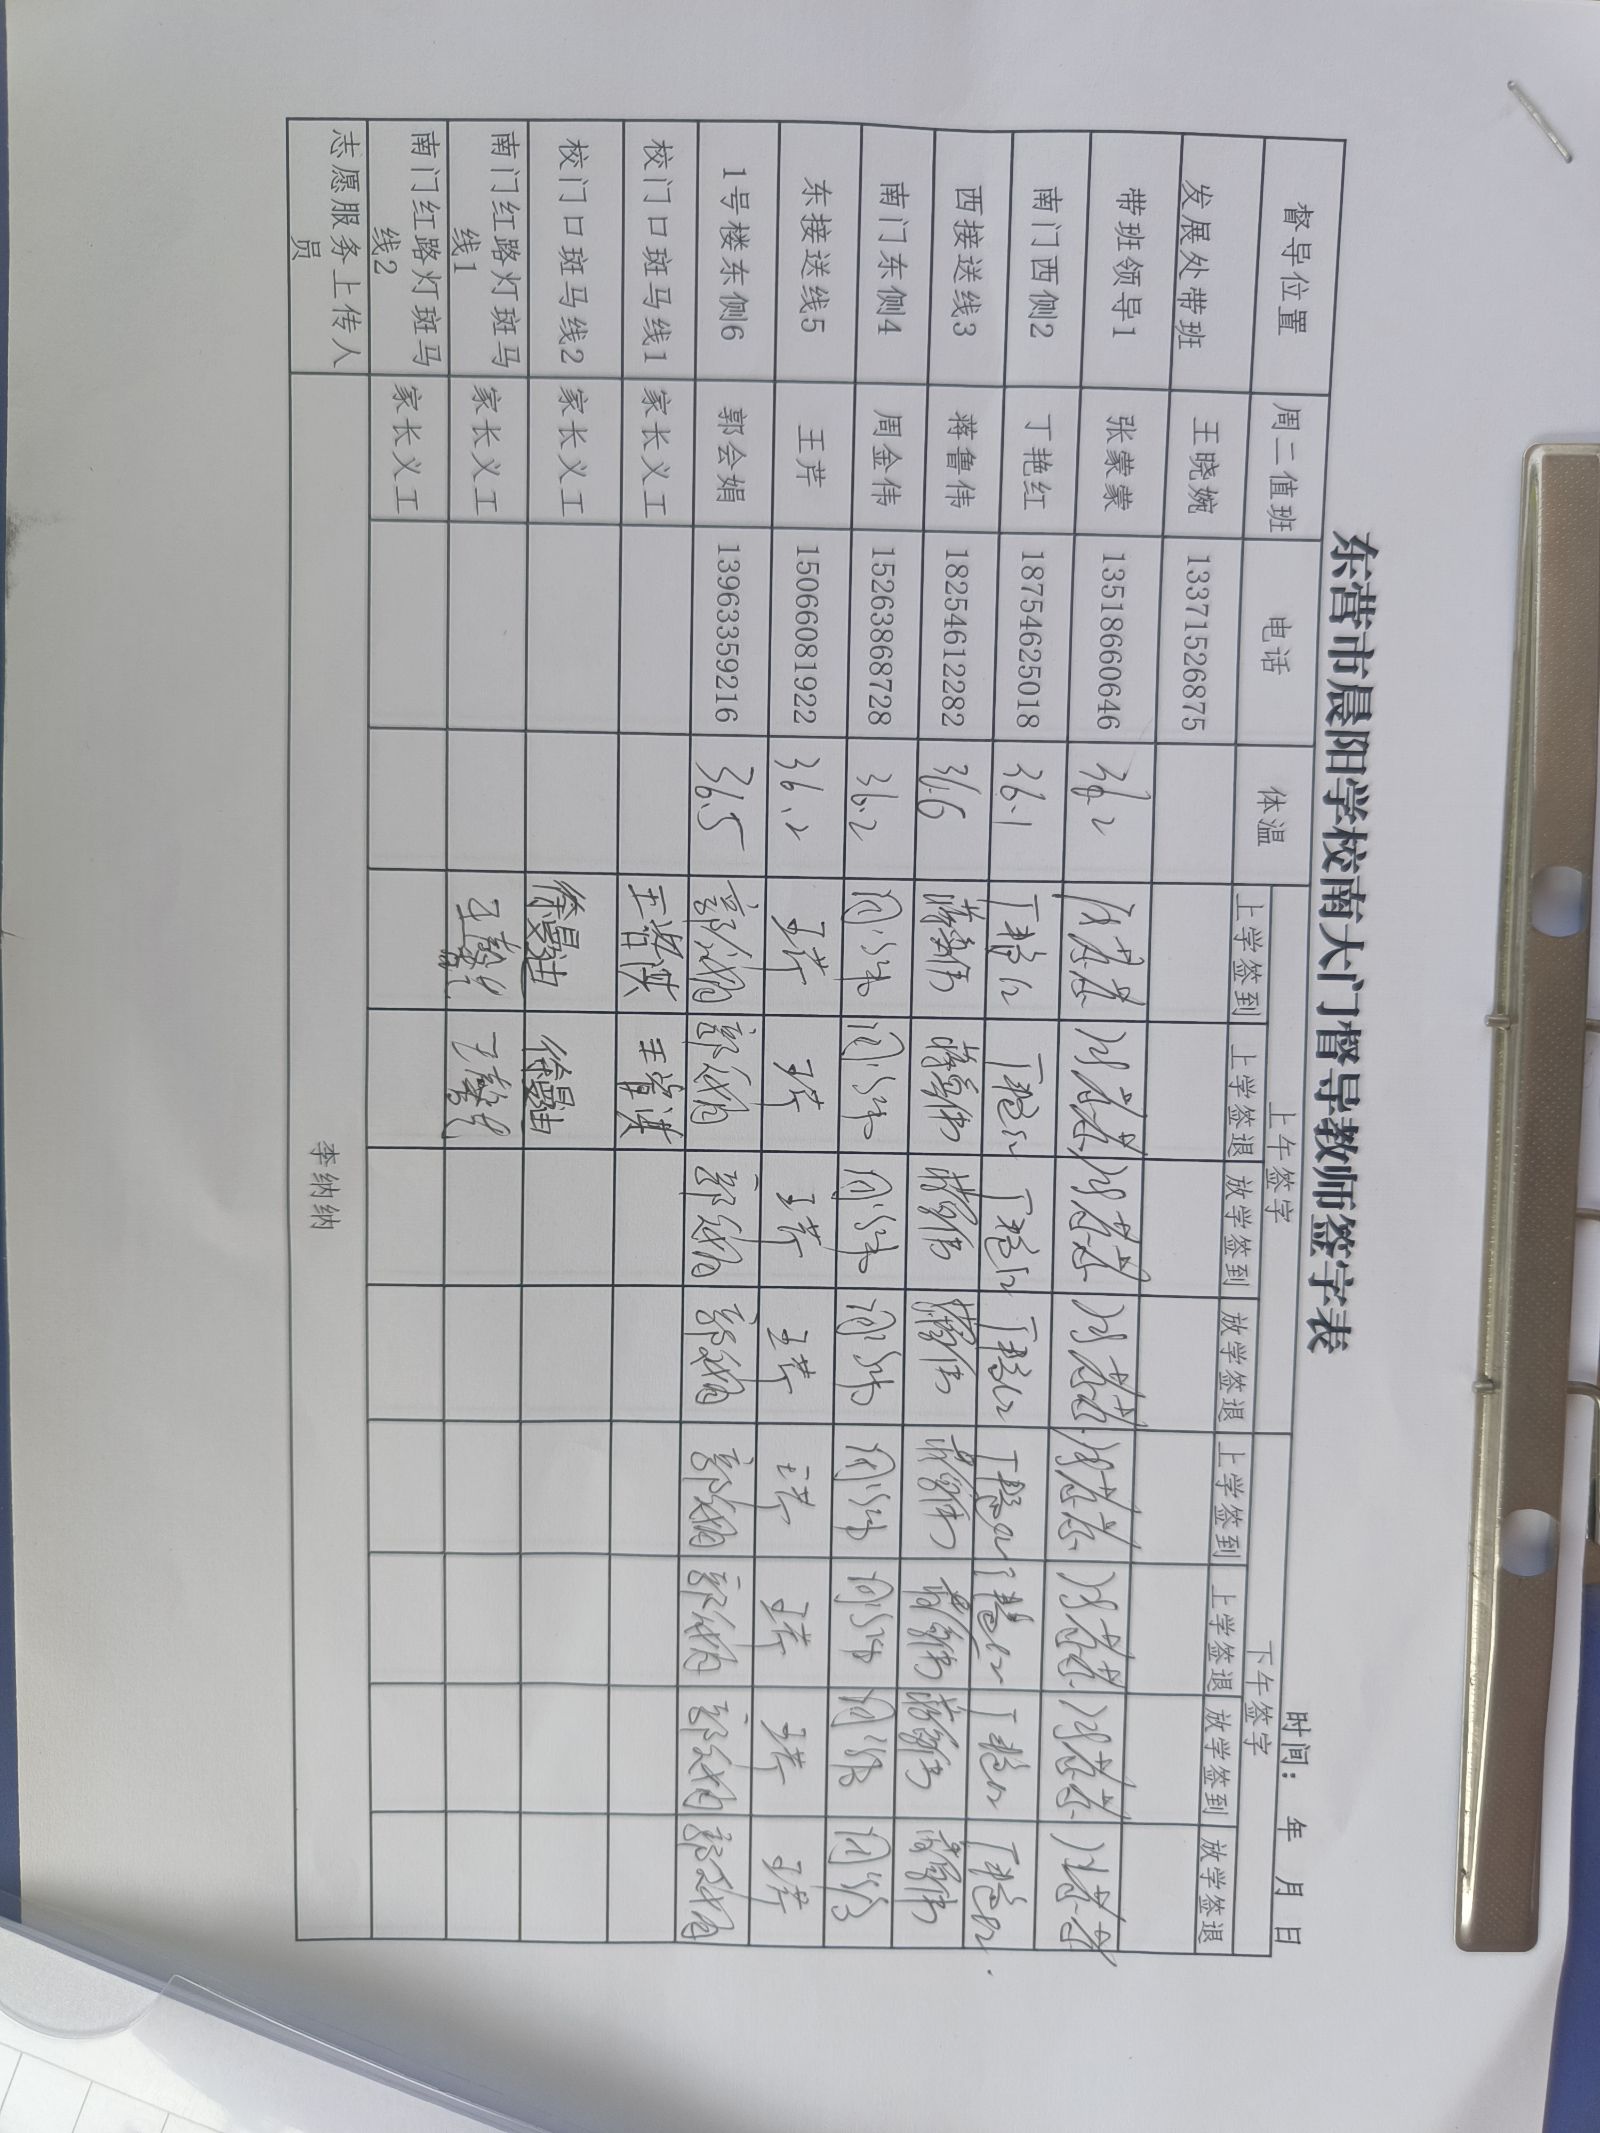 东营市晨阳学校南大门督导教师签字表
时间： 年 月 日
督导位置 周二值班 电话 体温 上午签字 下午签字
上学签到 上学签退 放学签到 放学签退 上学签到 上学签退 放学签到 放学签退
发展处带班 王晓婉 13371526875
带班领导1 张蒙蒙 13518660646 36.2
南门西侧2 丁艳红 18754625018 36.1 丁艳红 丁艳红 丁艳红 丁艳红 丁艳红 丁艳红 丁艳红 丁艳红
西接送线3 蒋鲁伟 18254612282 36.6 蒋鲁伟 蒋鲁伟 蒋鲁伟 蒋鲁伟 蒋鲁伟 蒋鲁伟 蒋鲁伟 蒋鲁伟
南门东侧4 周金伟 15263868728 36.2
东接送线5 王芹 15066081922 36.2 王芹 王芹 王芹 王芹 王芹 王芹 王芹 王芹
1号楼东侧6 郭会娟 13963359216 36.5 郭会娟 郭会娟 郭会娟 郭会娟 郭会娟 郭会娟 郭会娟 郭会娟
校门口斑马线1 家长义工
校门口斑马线2 家长义工 徐曼迪 徐曼迪
南门红路灯斑马线1 家长义工
南门红路灯斑马线2 家长义工
志愿服务上传人员 李纳纳